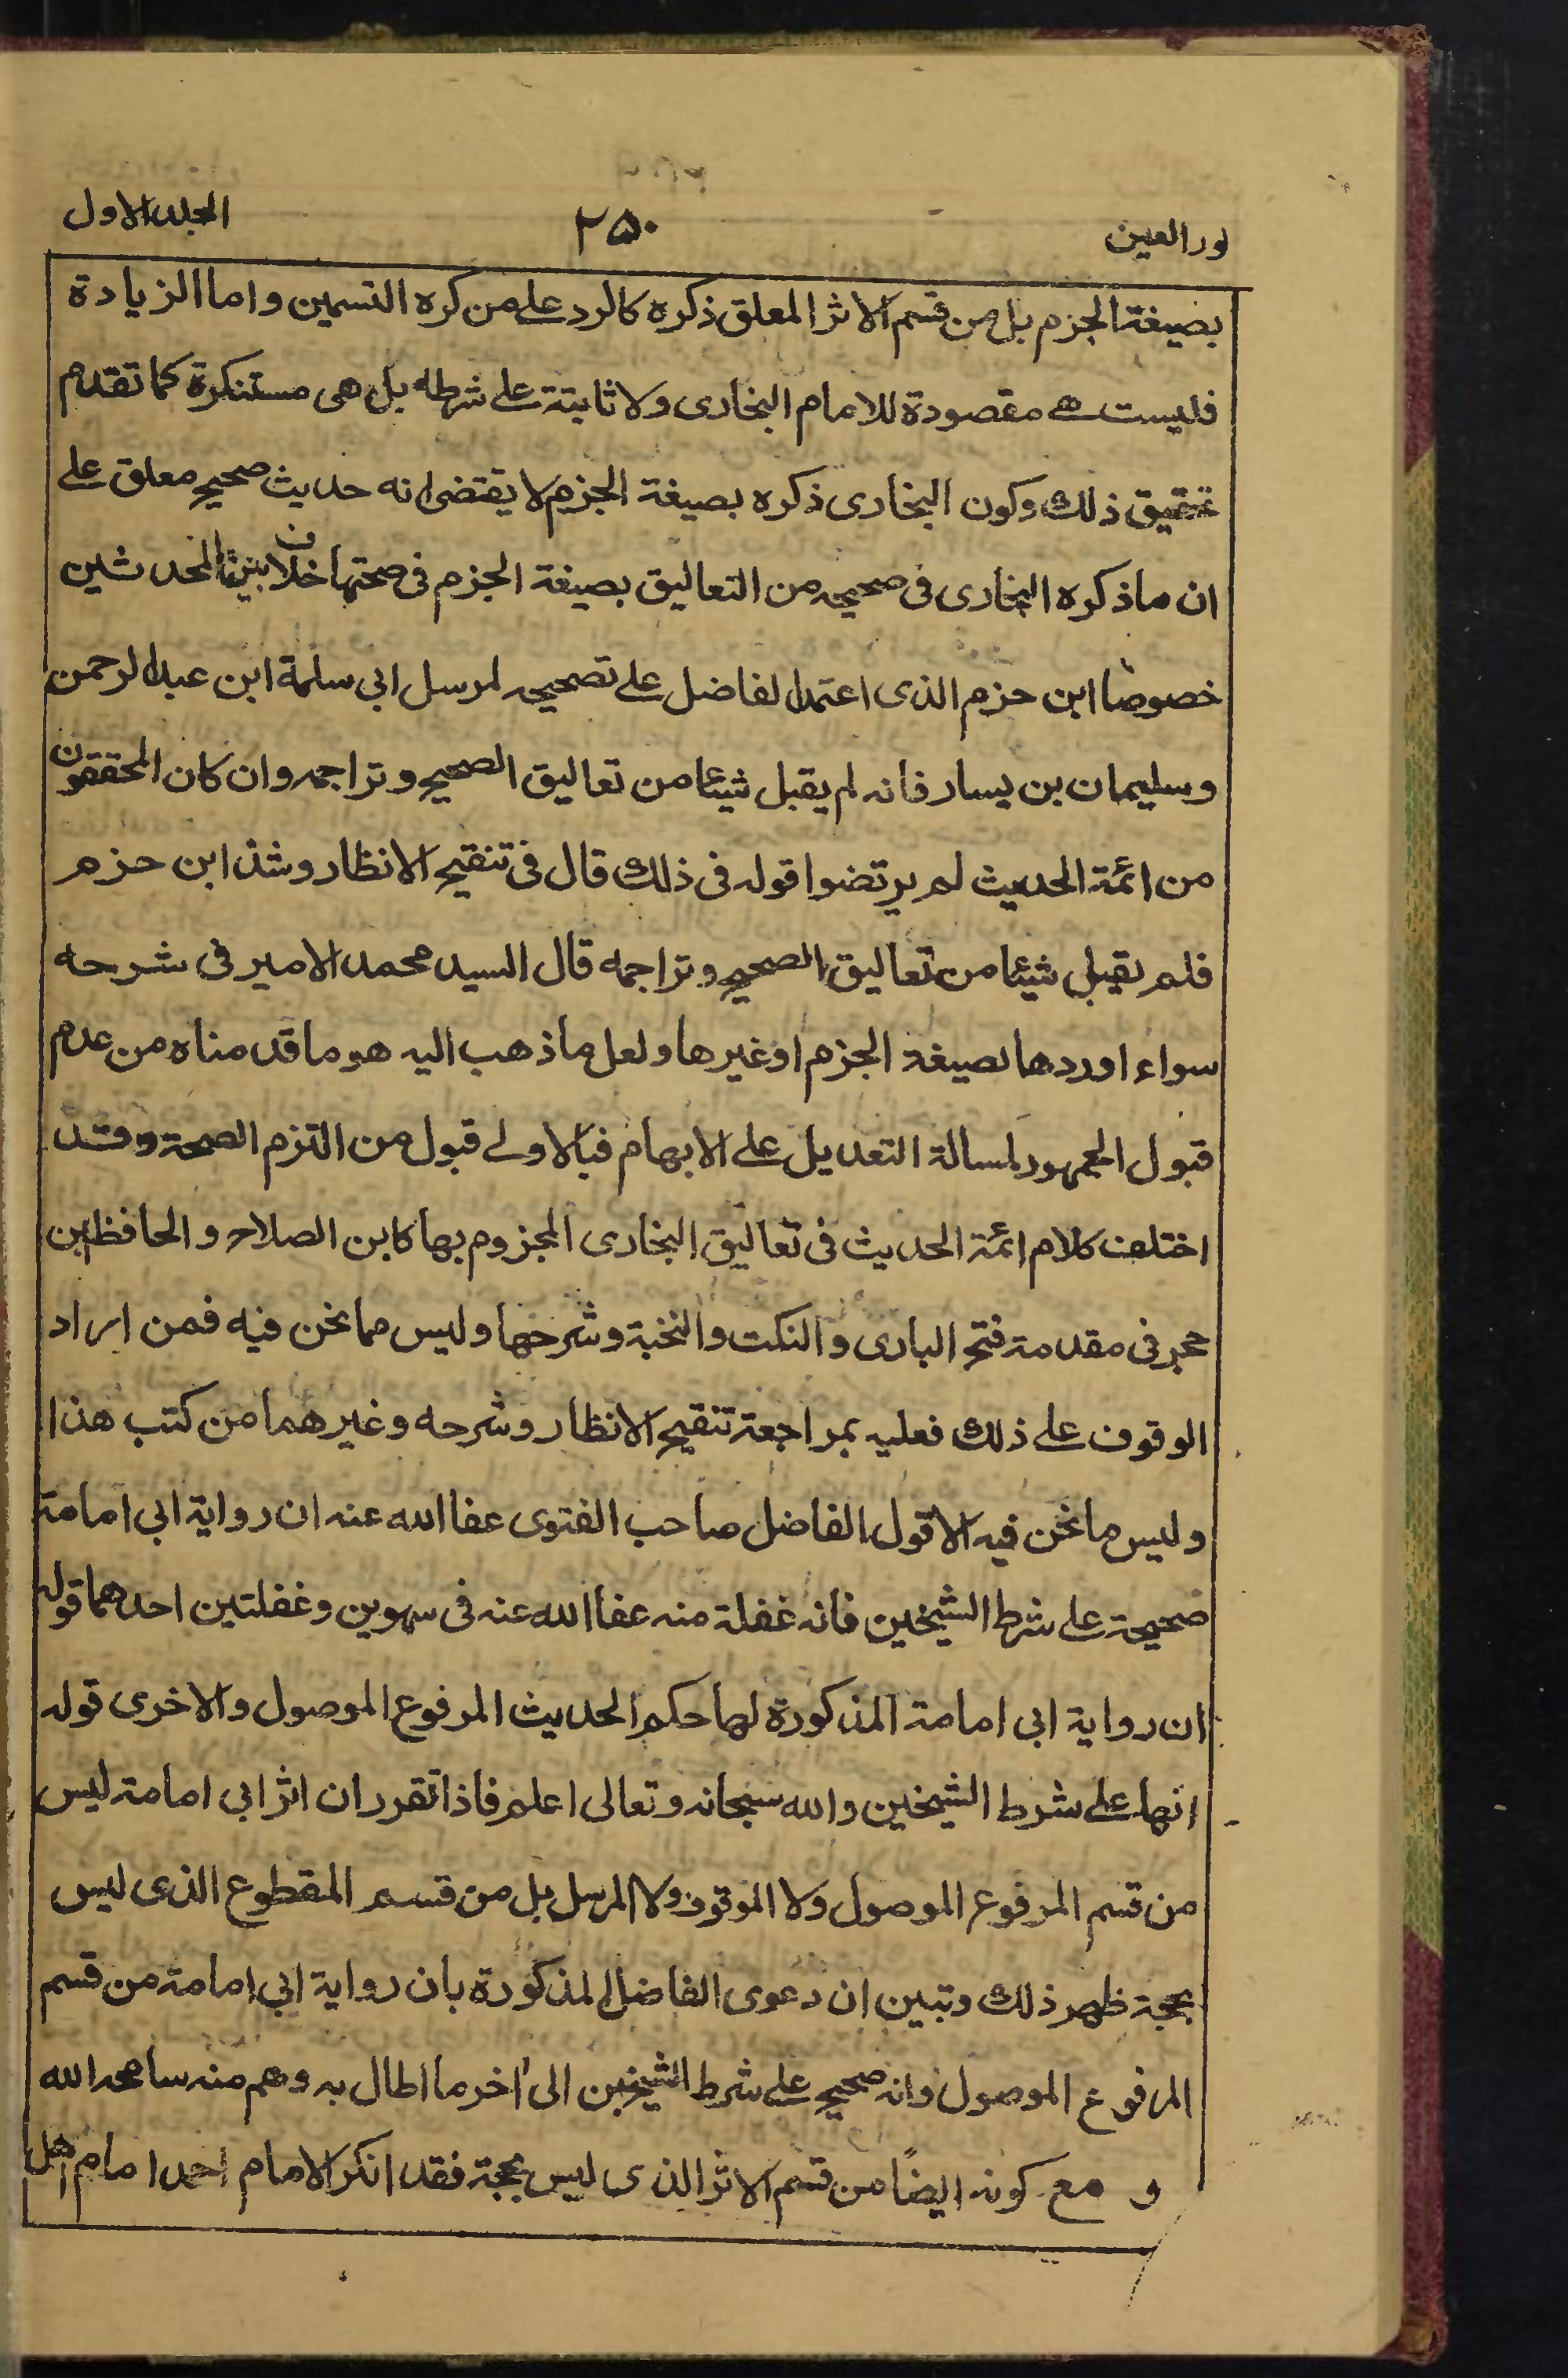 نور العين
٢٥٠
المجلد الاول
بصيغة الجزم بل من قسم الاثر المعلق ذكره كالرد على من كره التسمين واما الزيادة
فليست هے مقصودة للامام البخارى ولا ثابتة على شرطه بل هى مستنكرة كما تقدم
تحقيق ذلك وكون البخارى ذكره بصيغة الجزم لا يقتضى انه حديث صحيح معلق على
ان ما ذكره البخارى فى صحيحه من التعاليق بصيغة الجزم فى صحتها خلاف بين المحدثين
خصوصًا ابن حزم الذى اعتمد الفاضل على تصحيحه لمرسل ابى سلمة ابن عبد الرحمن
وسليمان بن يسار فانه لم يقبل شيئا من تعاليق الصحيح و تراجمه وان كان المحققون
من ائمة الحديث لم يرتضوا قوله فى ذلك قال فى تنقيح الانظار وشذ ابن حزم
فلم يقبل شيئا من تعاليق الصحيح و تراجمه قال السيد محمد الامير فى شرحه
سواء اوردها بصيغة الجزم اوغيرها ولعل ما ذهب اليه هو ما قدمناه من عدم
قبول الجمهور لمسالة التعديل على الابهام فبالاولے قبول من التزم الصحة وقد
اختلف كلام ائمة الحديث فى تعاليق البخارى المجزوم بها كابن الصلاح و الحافظ ابن
حجر فى مقدمة فتح البارى و النكت والنخبة وشرحها وليس مما نحن فيه فمن اراد
الوقوف على ذلك فعليه بمراجعة تنقيح الانظار وشرحه وغيرهما من كتب هذا
وليس ما نحن فيه الا قول الفاضل صاحب الفتوى عفا الله عنه ان رواية ابى امامة
صحيحة على شرط الشيخين فانه غفلة منه عفا الله عنه فى سهوين وغفلتين احدهما قوله
ان رواية ابى امامة المذكورة لها حكم الحديث المرفوع الموصول والاخرى قوله
انها على شرط الشيخين والله سبحانه وتعالى اعلم فاذا تقرر ان اثر ابى امامة ليس
من قسم المرفوع الموصول ولا الموقوف ولا المرسل بل من قسم المقطوع الذى ليس
بحجة ظهر ذلك وتبين ان دعوى الفاضل المذكورة بان رواية ابى امامة من قسم
المرفوع الموصول وانه صحيح على شرط الشيخين الى اخر ما اطال به وهم منه سامحه الله
و مع كونه ايضًا من قسم الاثر الذى ليس بحجة فقد انكر الامام احمد امام اهل